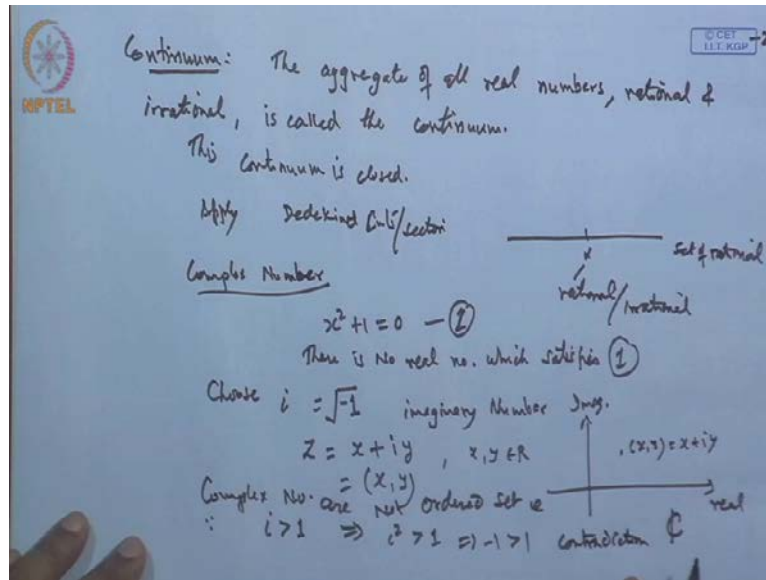 Continuum: The aggregate of all real numbers, rational &
irrational, is called the continuum.
This continuum is closed.
Apply Dedekind Cuts/section
set of rational
x
rational/irrational
Complex Number
x² + 1 = 0 — ①
There is No real no. which satisfies ①
Choose i = √-1 imaginary Number
Z = x + iy , x, y ∈ R
= (x, y)
Imag.
(x,y) = x+iy
real
ℂ
Complex No. are Not ordered set
∵ i > 1 ⇒ i² > 1 ⇒ -1 > 1 contradiction
NPTEL
© CET
I.I.T. KGP